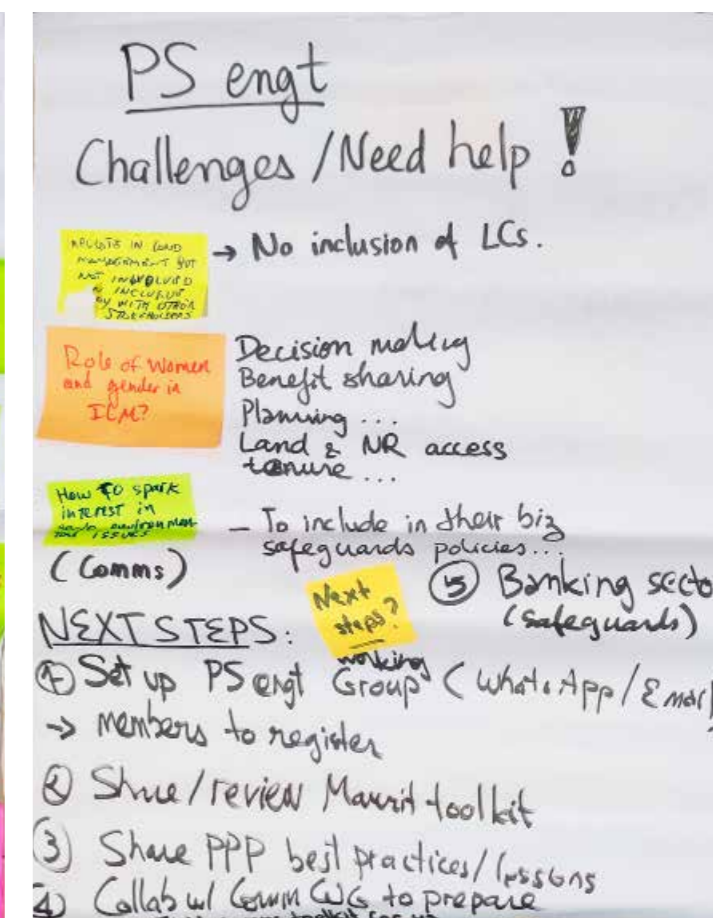 PS engt
Challenges / Need help !
IN LAND
MANAGEMENT BUT
NOT INVOLVED
INCLUSIVE
WITH OTHER
STAKEHOLDERS
→ No inclusion of LCs.
Role of Women
and gender in
ICM?
Decision making
Benefit sharing
Planning ...
Land & NR access
tenure ...
How to spark
interest in
issues
(Comms)
– To include in their biz
safeguards policies...
Next
steps?
⑤ Banking secto
(safeguards)
NEXT STEPS:
① Set up PS engt working Group (WhatsApp / Email)
→ members to register
② Share / review toolkit
③ Share PPP best practices / lessons
④ Collab w/ Comm CWG to prepare
toolkit for us